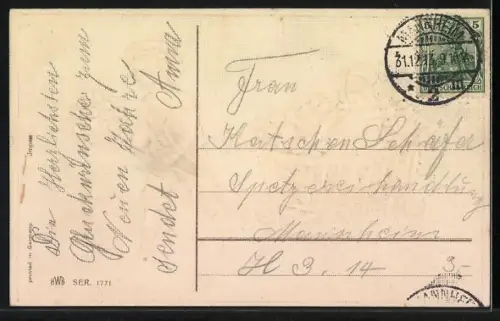 Die Herzlichsten
Glückwünsche zum
Neuen Jahre
sendet Anna
printed in Germany
HWB SER. 1771
5
MANNHEIM
31.12.13.
Frau
Katschen Schäfer
Spetzereihandlung
Mannheim
H 3. 14
3.-
MANNHE